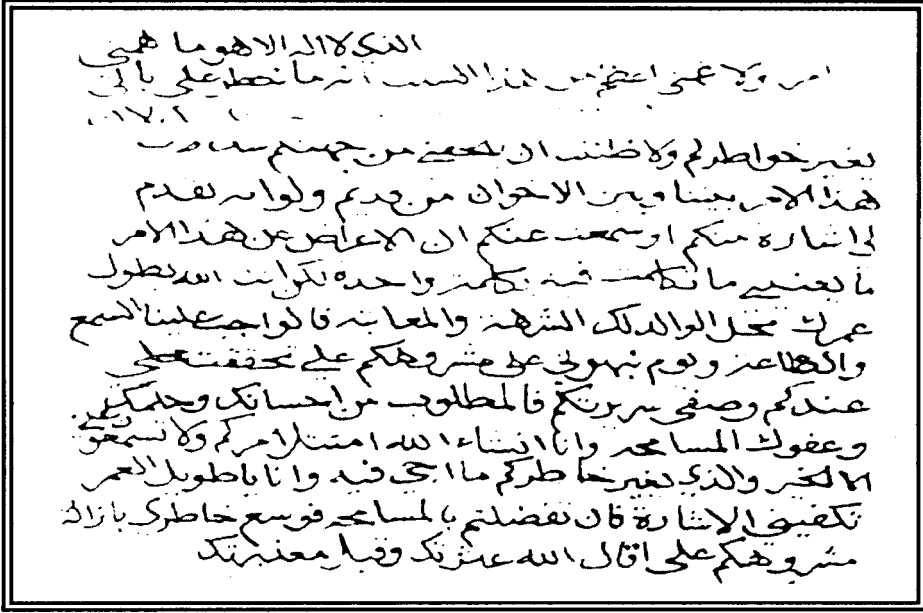 الذي لا اله الا هو ما همني
امر ولا غمني اعظم من هذا السبب انه ما نخطر على بالي
نغير خواطركم ولا ظننت ان يلحقني من جهتكم
هذا الامر بيننا وبين الاخوان من قديم ولو انه تقدم
لي اشارة منكم او سمعت عنكم ان الاعراض عن هذا الامر
ما يعنيني ما تكلمت فيه بكلمة واحدة لكن انت الله يطول
عمرك محل الوالد لك الشرهة والمعاتبة فالواجب علينا السمع
والطاعة ويوم نبهوني على مشروهكم علي تحققت محلي
عندكم وصفى سريرتكم فالمطلوب من احسانك وحلمك
وعفوك المسامحه وانا انشاء الله امتثل امركم ولا تسمعون عني
الا الخير والذي يغير خاطركم ما اجي فيه وانا يا طويل العمر
تكفيني الاشارة فان تفضلتم بالمسامحه فوسع خاطري بازالة
مشروهكم علي اقال الله عثرتك وقبل معذرتك